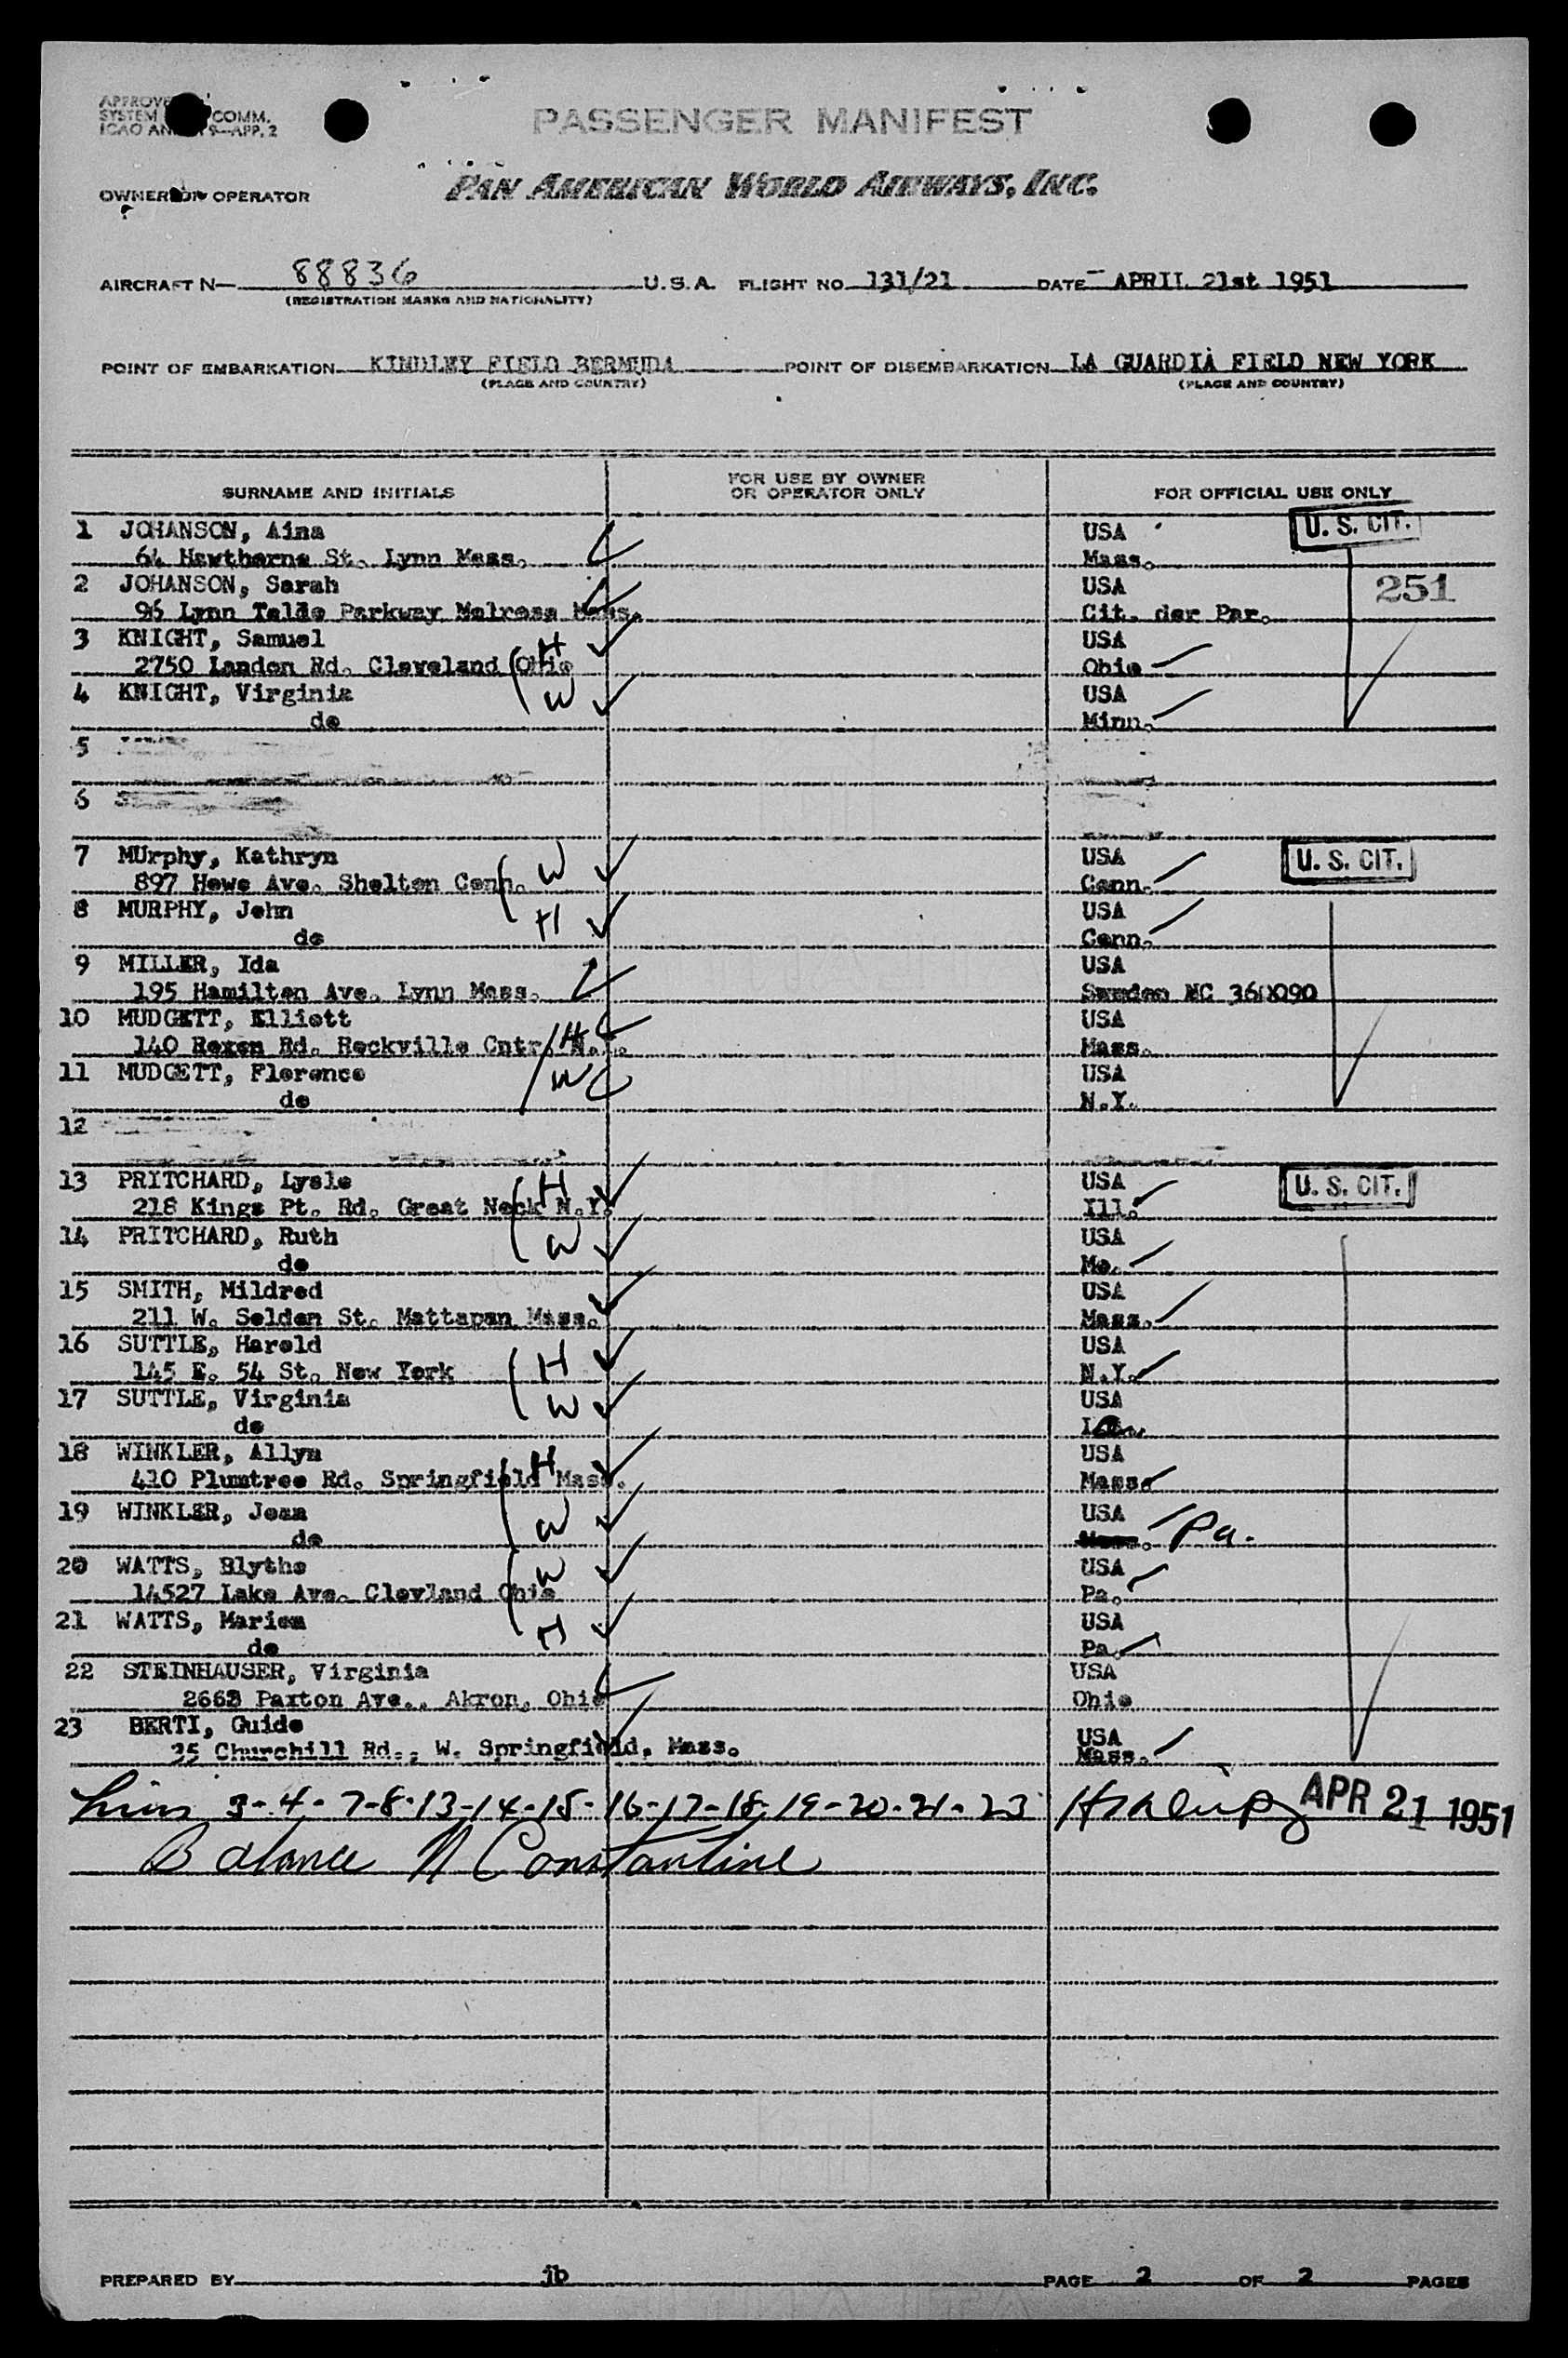 PASSENGER MANIFEST
PAN AMERICAN WORLD AIRWAYS, INC.
OPERATOR
AIRCRAFT N— 88836 U.S.A. FLIGHT NO. 131/21 DATE APRIL 21st 1951
(REGISTRATION MARKS AND NATIONALITY)
POINT OF EMBARKATION KINDLEY FIELD BERMUDA POINT OF DISEMBARKATION LA GUARDIA FIELD NEW YORK
(PLACE AND COUNTRY) (PLACE AND COUNTRY)
SURNAME AND INITIALS FOR USE BY OWNER OR OPERATOR ONLY FOR OFFICIAL USE ONLY
1 JOHANSON, Aina USA U. S. CIT.
64 Hawthorne St. Lynn Mass. Mass.
2 JOHANSON, Sarah USA 251
96 Lynn Parkway Melrose Mass. Cit. der Par.
3 KNIGHT, Samuel H USA
2750 Landon Rd. Cleveland Ohio Ohio
4 KNIGHT, Virginia W USA
do Minn.
5
6
7 MUrphy, Kathryn W USA U. S. CIT.
897 Howe Ave. Shelton Conn. Conn.
8 MURPHY, John H USA
do Conn.
9 MILLER, Ida USA
195 Hamilton Ave. Lynn Mass. Sweden NC
10 MUDGETT, Elliott H USA
140 Roxen Rd. Rockville Cntr. N.Y. Mass.
11 MUDGETT, Florence W USA
do N.Y.
12
13 PRITCHARD, Lysle H USA U. S. CIT.
218 Kings Pt. Rd. Great Neck N.Y. Ill.
14 PRITCHARD, Ruth W USA
do Mo.
15 SMITH, Mildred USA
211 W. Selden St. Mattapan Mass. Mass.
16 SUTTLE, Harold H USA
145 E. 54 St. New York N.Y.
17 SUTTLE, Virginia W USA
do
18 WINKLER, Allyn H USA
410 Plumtree Rd. Springfield Mass. Mass.
19 WINKLER, Joan W USA
do Pa.
20 WATTS, Blythe W USA
14527 Lake Ave. Clevland Ohio Pa.
21 WATTS, Marion H USA
do Pa.
22 STEINHAUSER, Virginia USA
Paxton Ave., Akron, Ohio Ohio
23 BERTI, Guido USA
35 Churchill Rd., W. Springfield, Mass. Mass.
3-4-7-8-13-14-15-16-17-18-19-20-21-23 APR 21 1951
Balance N Constantine
PREPARED BY jb PAGE 2 OF 2 PAGES